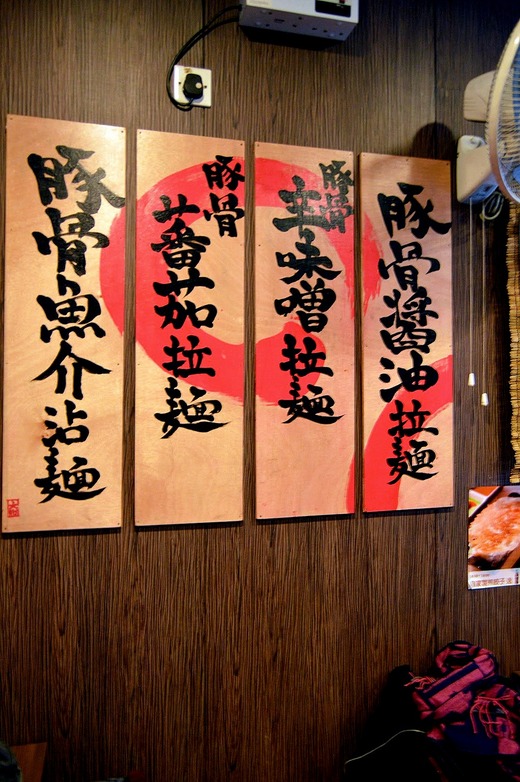 豚骨醬油拉麺
豚骨
辛味噌拉麺
豚骨
蕃茄拉麺
豚骨魚介沾麺